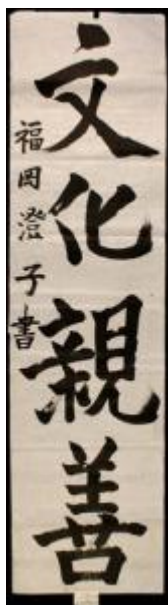 文化親善
福岡澄子書